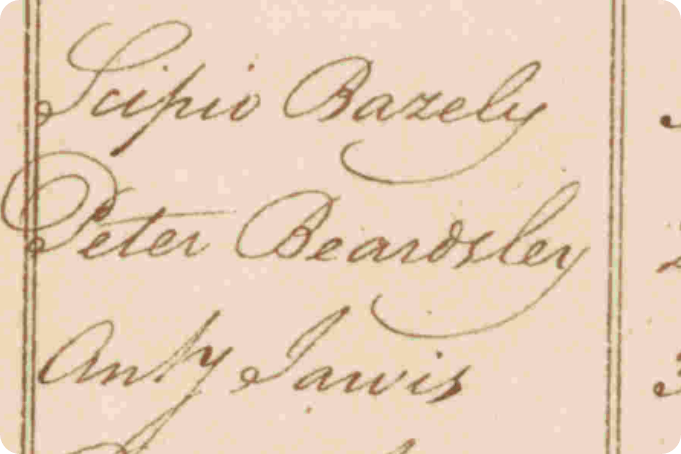 Scipio Bazely
Peter Beardsley
Anty Jarvis